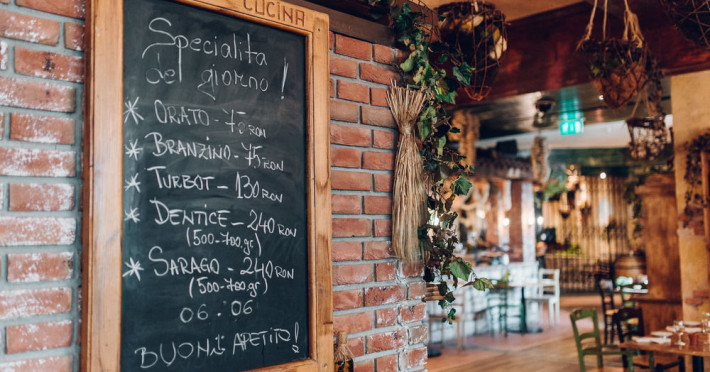 CUCINA
Specialita
del giorno!
* ORATO - 75 RON
* BRANZINO - 75 RON
* TURBOT - 130 RON
* DENTICE - 240 RON
(500-700 gr)
* SARAGO - 240 RON
(500-700 gr)
06.06
BUON APETITO!